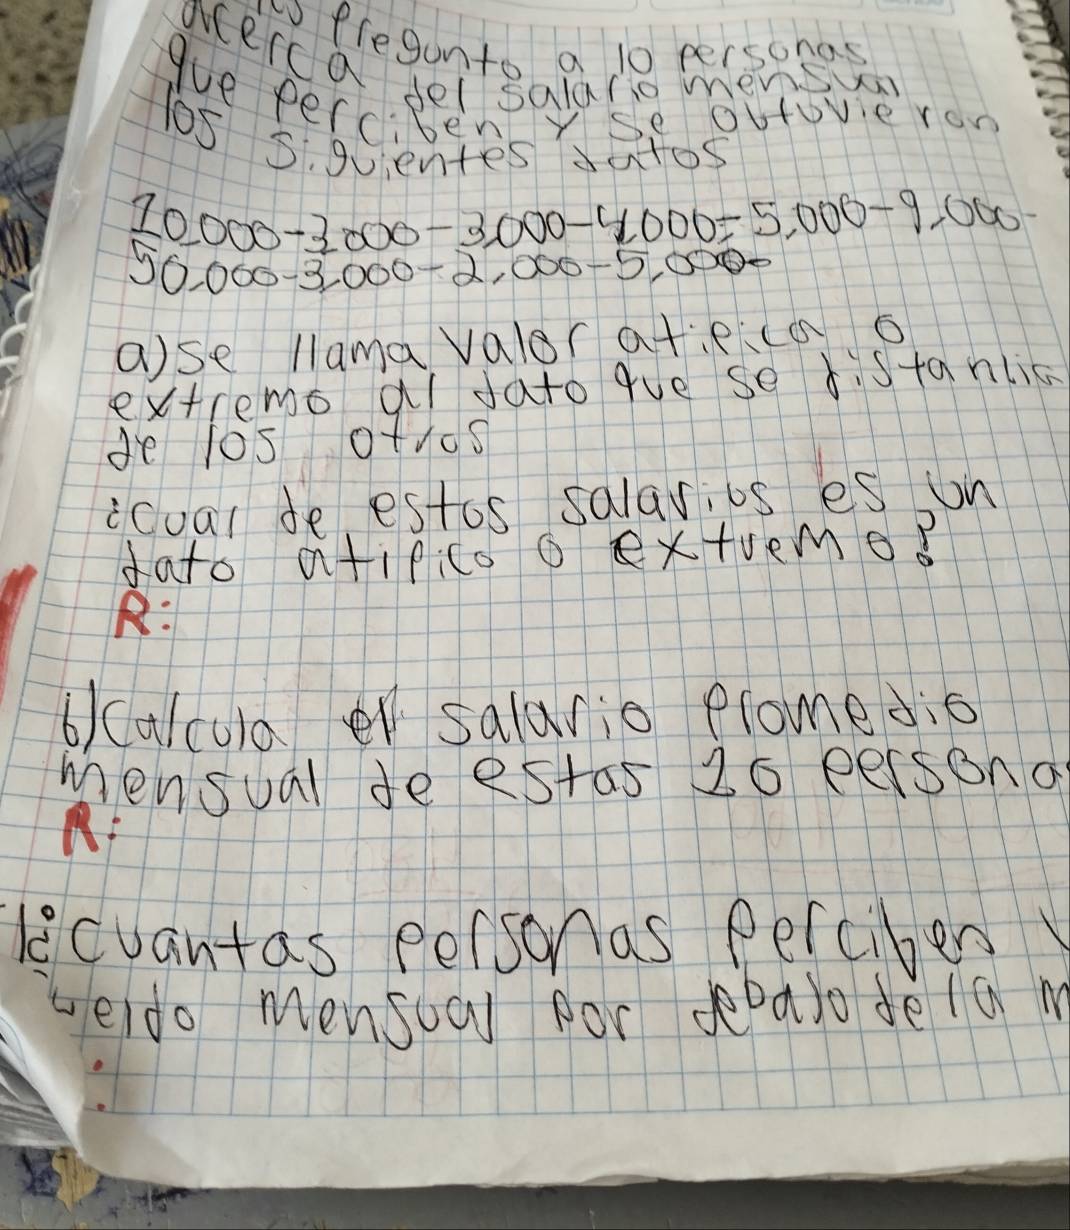 acerca Pregunto a 10 personas
que perciben del salario mensual
los siguientes y se obtuvieron
datos
10,000-3,000-3,000-4,000-5,000-9,000-
50,000-3,000-2,000-5,000-
a) se llama valor atipico o
extremo al dato que se distancia
de los otros
¿cual de estos salarios es un
dato atipico o extremo?
R:
b) Calcula el salario promedio
mensual de estas 10 persona
R:
¿cuantas personas perciben
mensual por debajo de la m